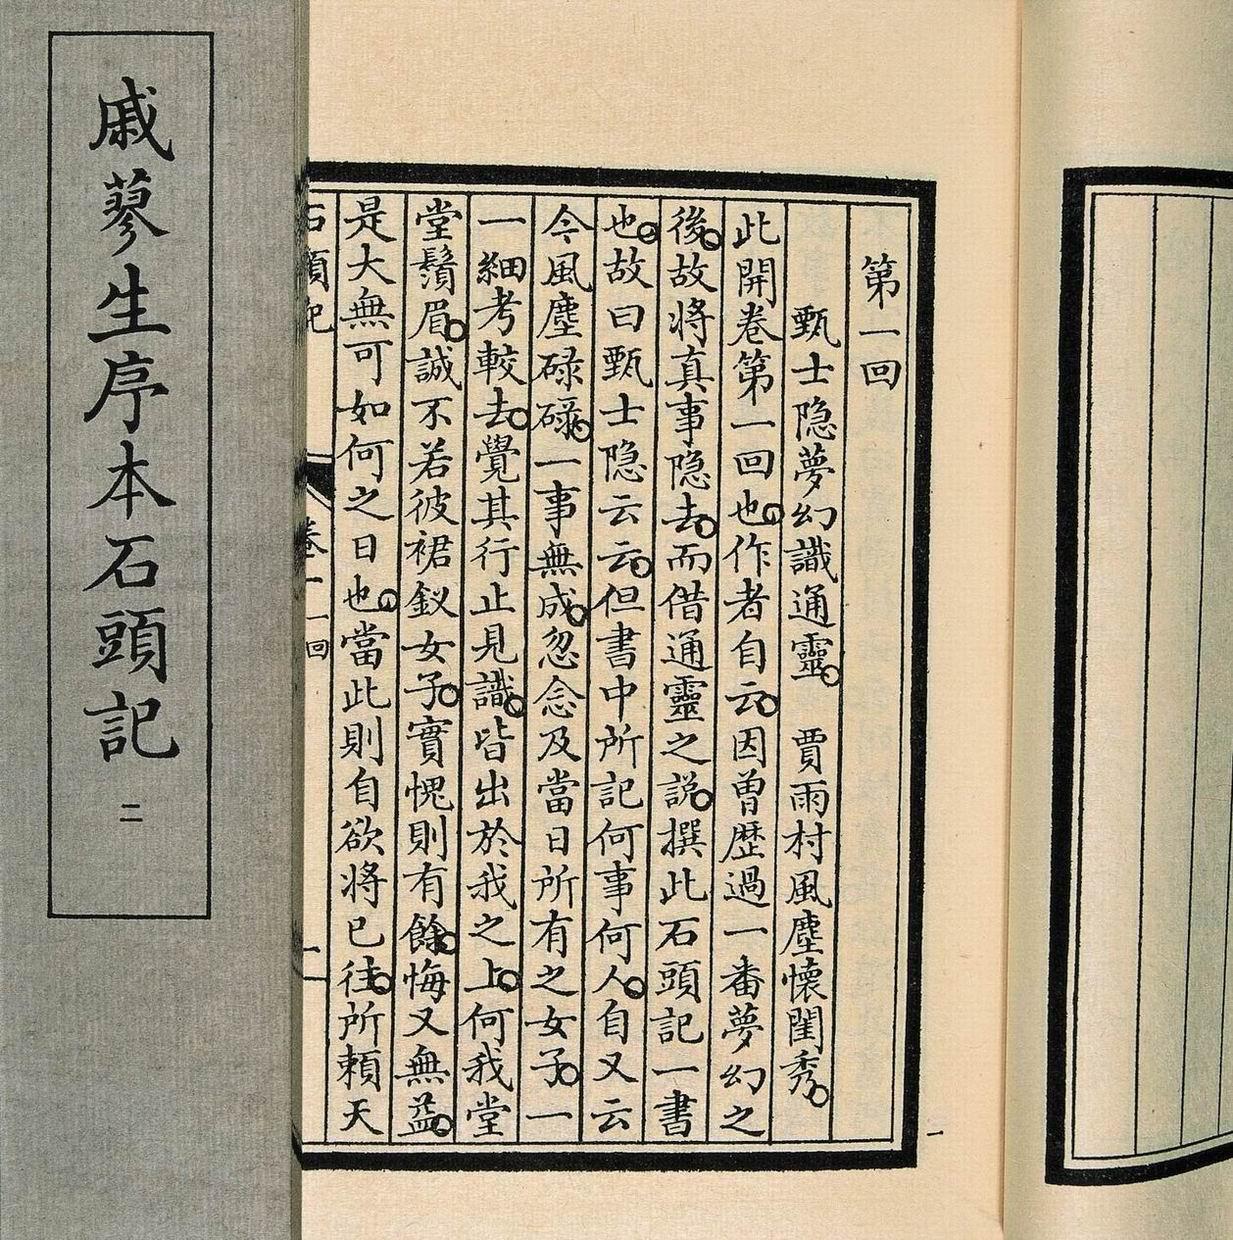 戚蓼生序本石頭記
二
第一回
甄士隐夢幻識通靈。　賈雨村風塵懷閨秀。
此開卷第一回也。作者自云。因曾歷過一番夢幻之
後。故将真事隐去。而借通靈之說。撰此石頭記一書
也。故曰甄士隐云云。但書中所記何事何人。自又云
今風塵碌碌。一事無成。忽念及當日所有之女子。一
一細考較去。覺其行止見識。皆出於我之上。何我堂
堂鬚眉。誠不若彼裙釵女子。實愧則有餘。悔又無益。
是大無可如何之日也。當此則自欲将已往。所賴天
石頭記
卷一
一回
一
一